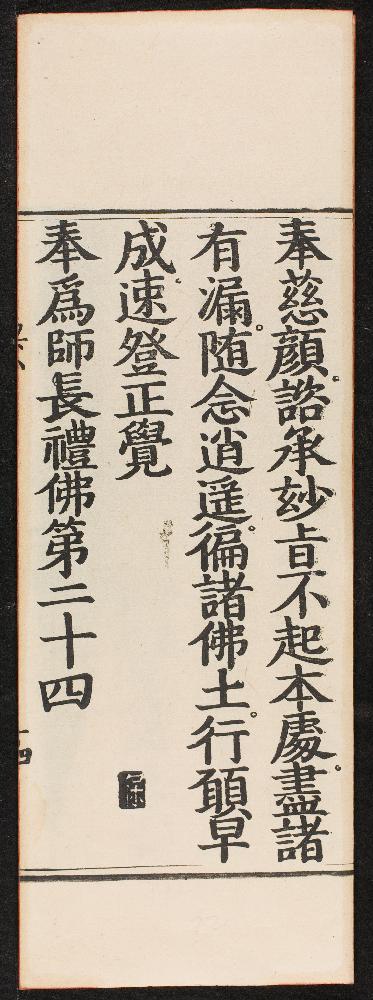 奉慈顔。諮承妙旨不起本處。盡諸
有漏。随念逍遥。徧諸佛土。行願早
成。速登正覺
奉爲師長禮佛第二十四